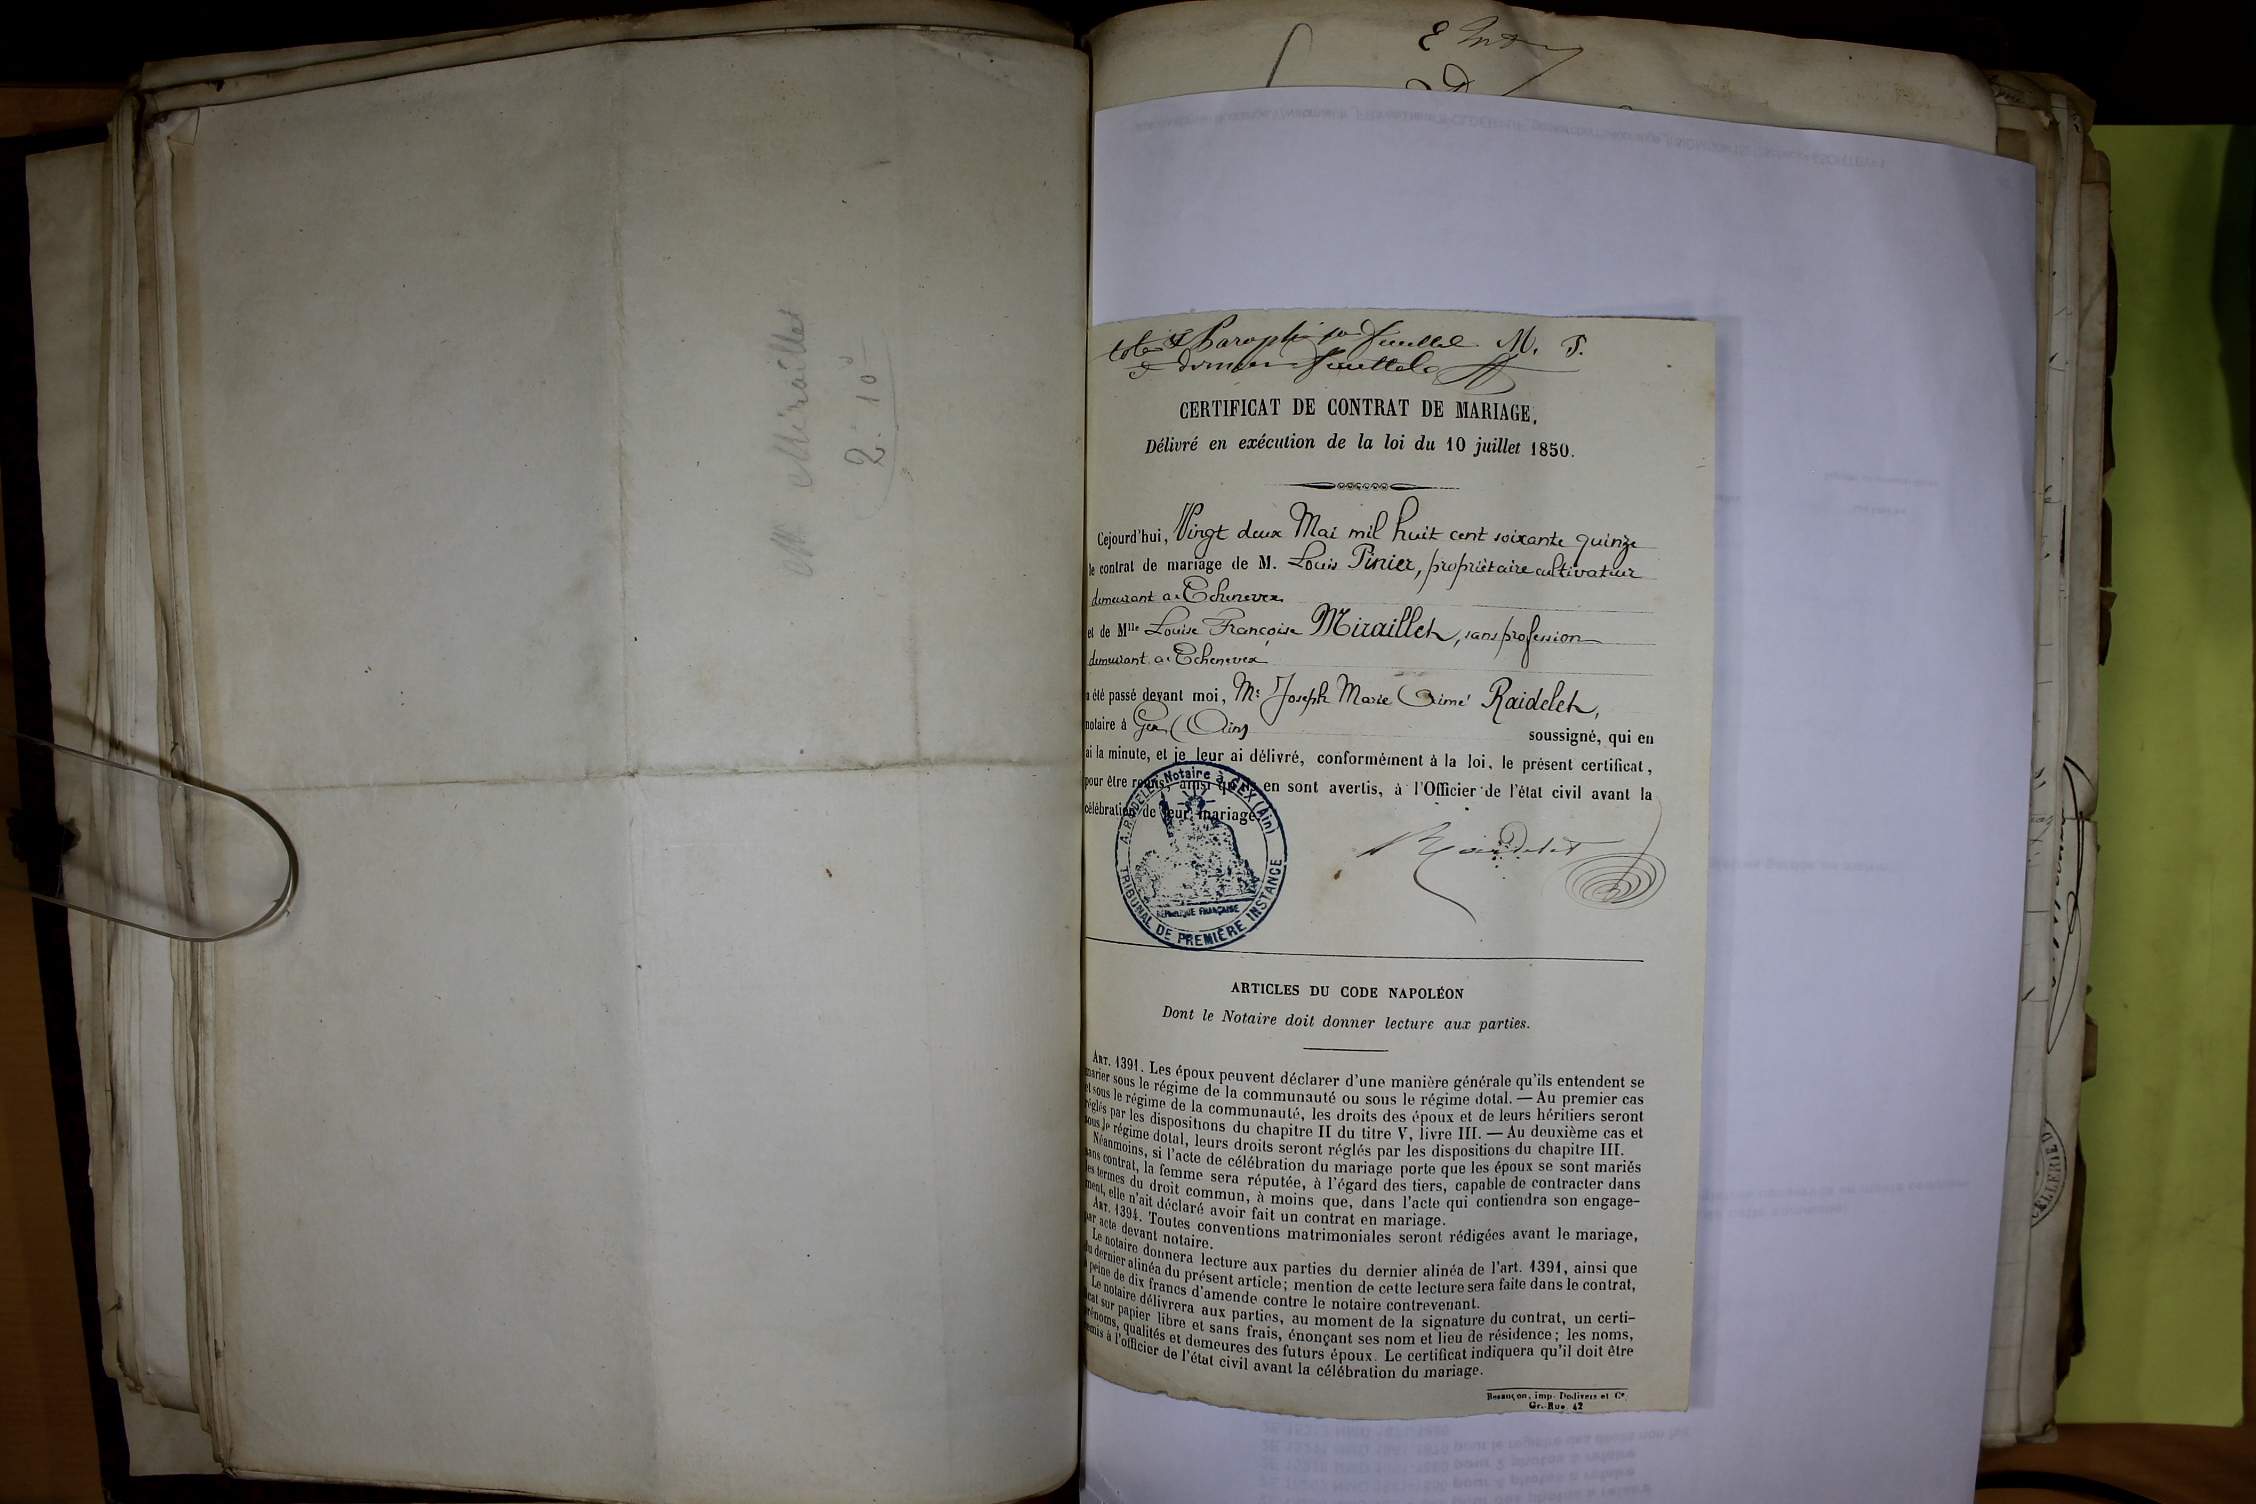 M Miraillet
2. 10
coté & Paraphé M. P.
CERTIFICAT DE CONTRAT DE MARIAGE,
Délivré en exécution de la loi du 10 juillet 1850.
Cejourd'hui, Vingt deux Mai mil huit cent soixante quinze
le contrat de mariage de M. Louis Pinier, propriétaire cultivateur
demeurant à Echenevex
et de Mlle Louise Françoise Miraillet, sans profession
demeurant à Echenevex
a été passé devant moi, Me Joseph Marie Aimé Raidelet,
notaire à Gex (Ain) soussigné, qui en
ai la minute, et je leur ai délivré, conformément à la loi, le présent certificat,
pour être remis, ainsi qu'ils en sont avertis, à l'Officier de l'état civil avant la
célébration de leur mariage.
A. RAIDELET Notaire à GEX (Ain)
TRIBUNAL DE PREMIÈRE INSTANCE
RÉPUBLIQUE FRANÇAISE
Raidelet
ARTICLES DU CODE NAPOLÉON
Dont le Notaire doit donner lecture aux parties.
ART. 1391. Les époux peuvent déclarer d'une manière générale qu'ils entendent se
marier sous le régime de la communauté ou sous le régime dotal. — Au premier cas
et sous le régime de la communauté, les droits des époux et de leurs héritiers seront
réglés par les dispositions du chapitre II du titre V, livre III. — Au deuxième cas et
sous le régime dotal, leurs droits seront réglés par les dispositions du chapitre III.
Néanmoins, si l'acte de célébration du mariage porte que les époux se sont mariés
sans contrat, la femme sera réputée, à l'égard des tiers, capable de contracter dans
les termes du droit commun, à moins que, dans l'acte qui contiendra son engage-
ment, elle n'ait déclaré avoir fait un contrat en mariage.
ART. 1394. Toutes conventions matrimoniales seront rédigées avant le mariage,
par acte devant notaire.
Le notaire donnera lecture aux parties du dernier alinéa de l'art. 1391, ainsi que
du dernier alinéa du présent article; mention de cette lecture sera faite dans le contrat,
à peine de dix francs d'amende contre le notaire contrevenant.
Le notaire délivrera aux parties, au moment de la signature du contrat, un certi-
ficat sur papier libre et sans frais, énonçant ses nom et lieu de résidence; les noms,
prénoms, qualités et demeures des futurs époux. Le certificat indiquera qu'il doit être
remis à l'officier de l'état civil avant la célébration du mariage.
Besançon, imp. Dodivers et Ce,
Gr.-Rue, 42